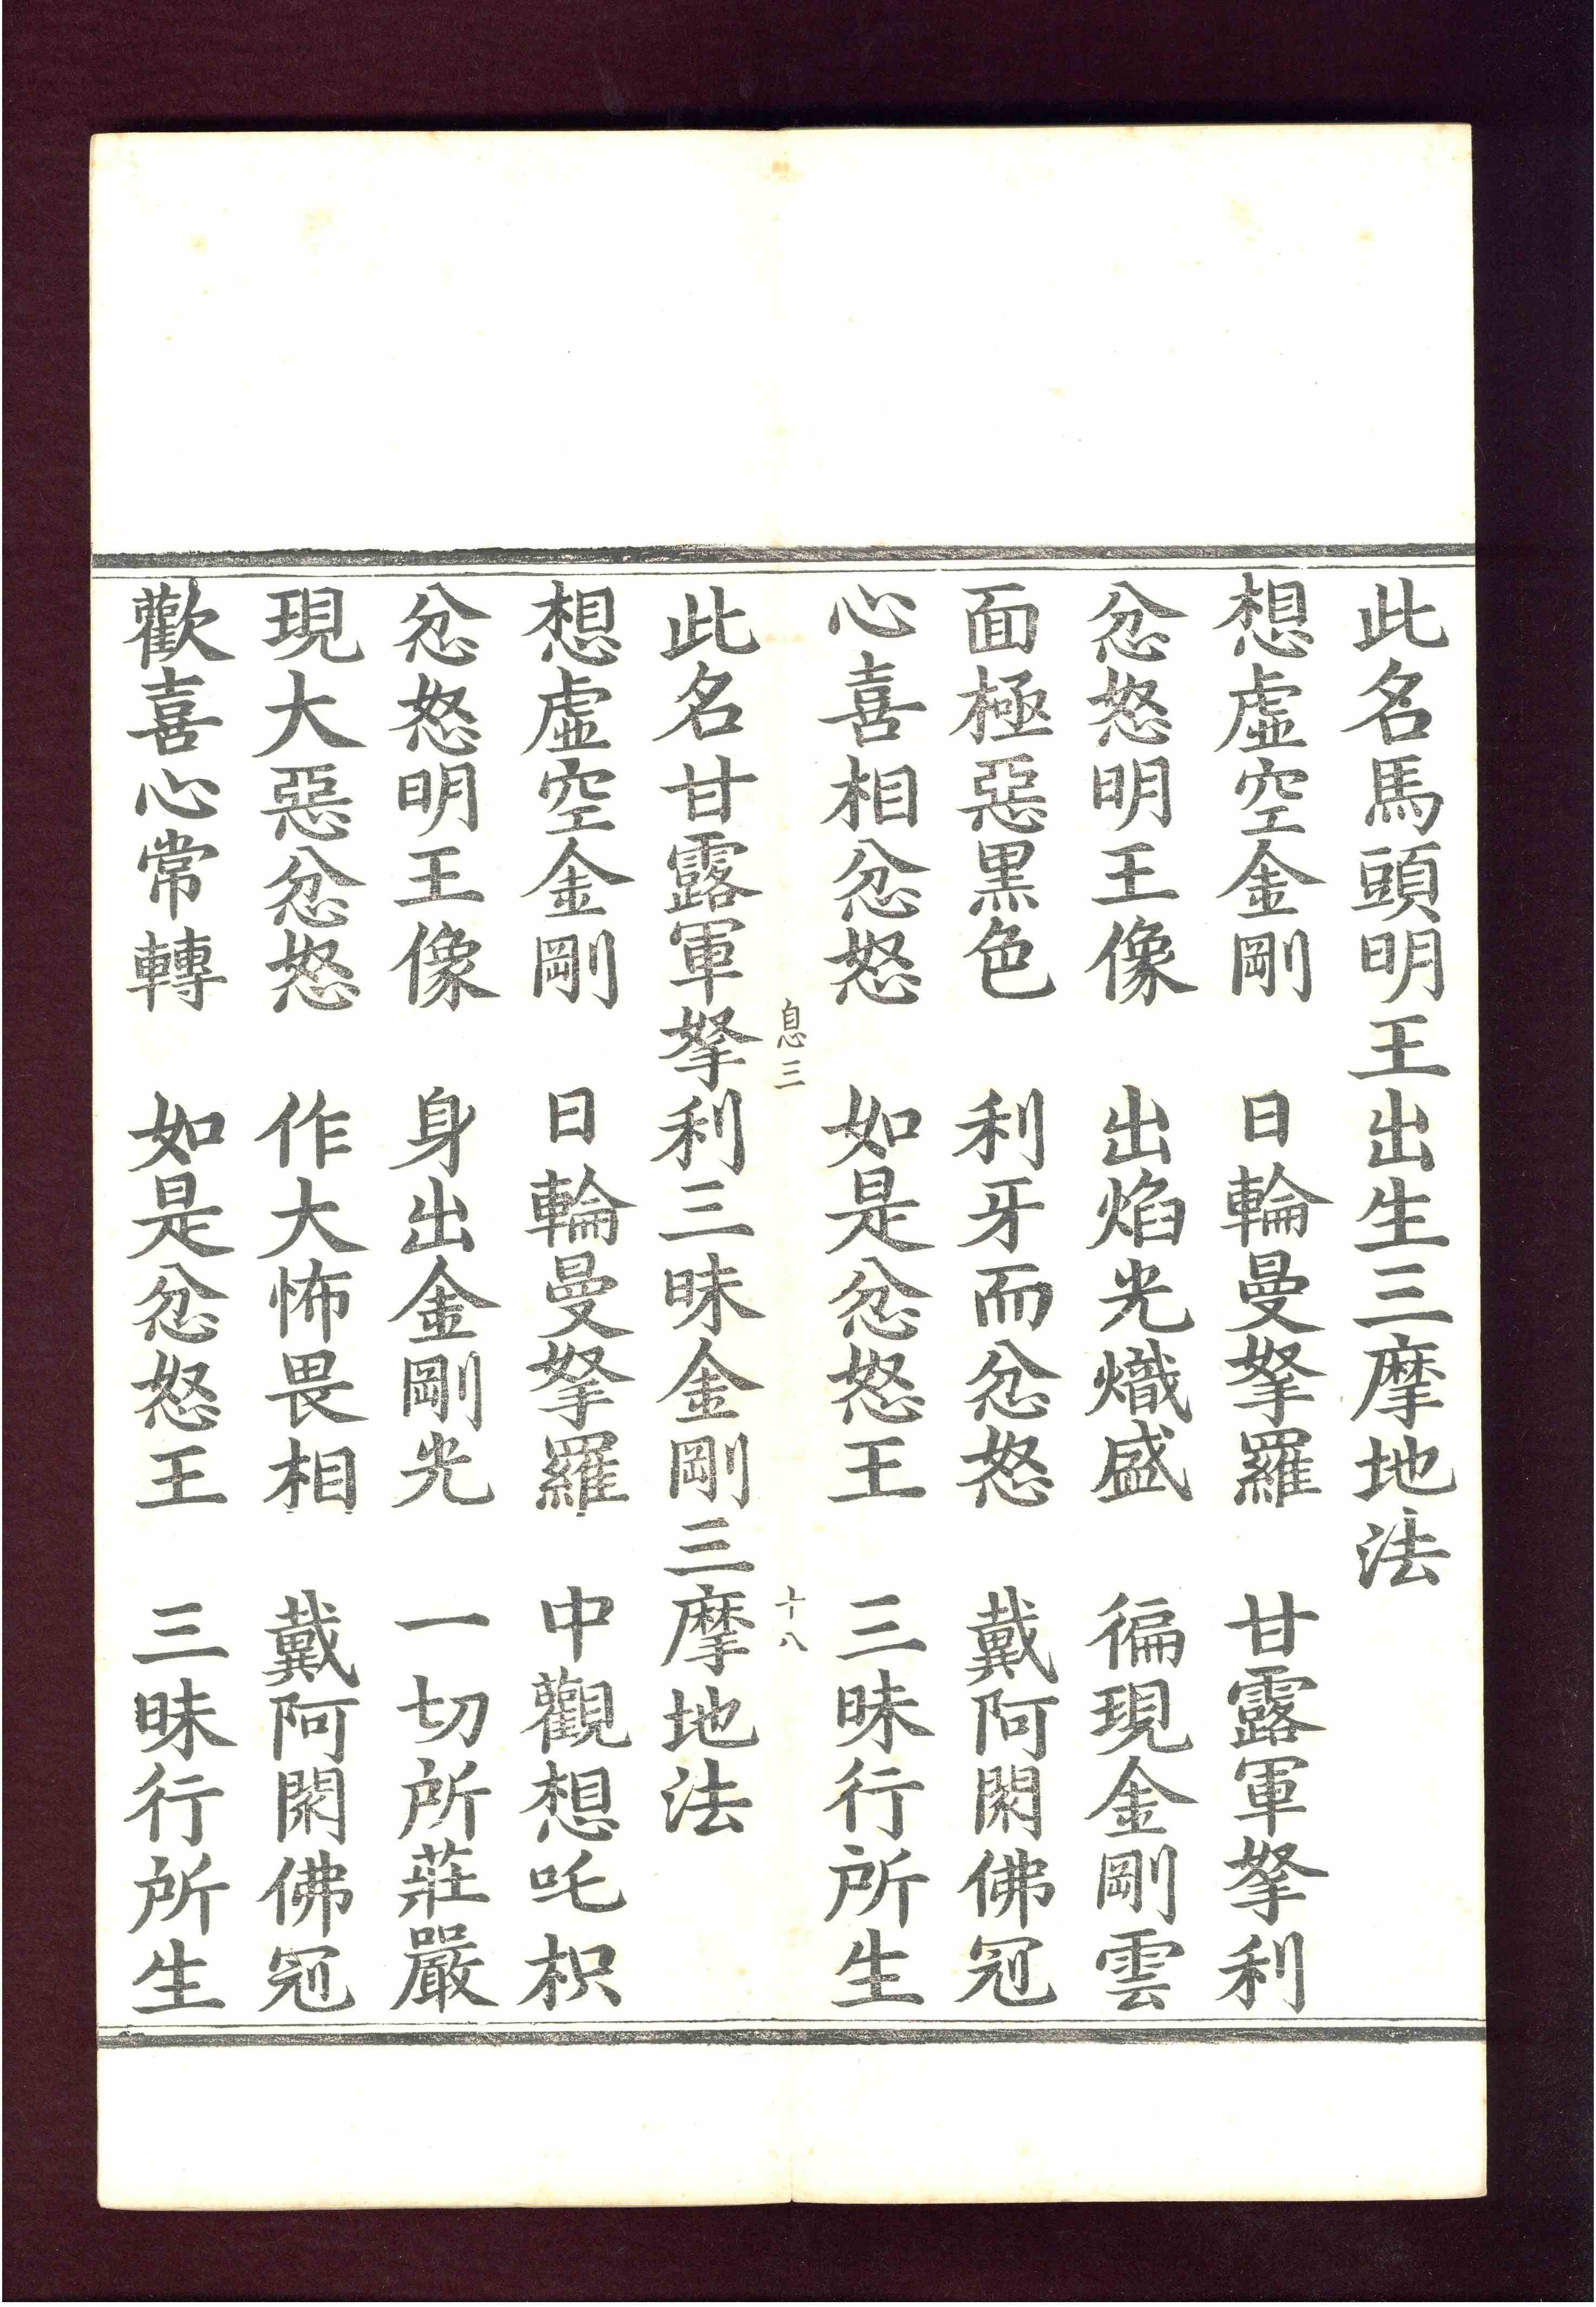 此名馬頭明王出生三摩地法
想虛空金剛　日輪曼拏羅　甘露軍拏利
忿怒明王像　出焰光熾盛　徧現金剛雲
面極惡黑色　利牙而忿怒　戴阿閦佛冠
心喜相忿怒　如是忿怒王　三昧行所生
息三　十八
此名甘露軍拏利三昧金剛三摩地法
想虛空金剛　日輪曼拏羅　中觀想吒枳
忿怒明王像　身出金剛光　一切所莊嚴
現大惡忿怒　作大怖畏相　戴阿閦佛冠
歡喜心常轉　如是忿怒王　三昧行所生